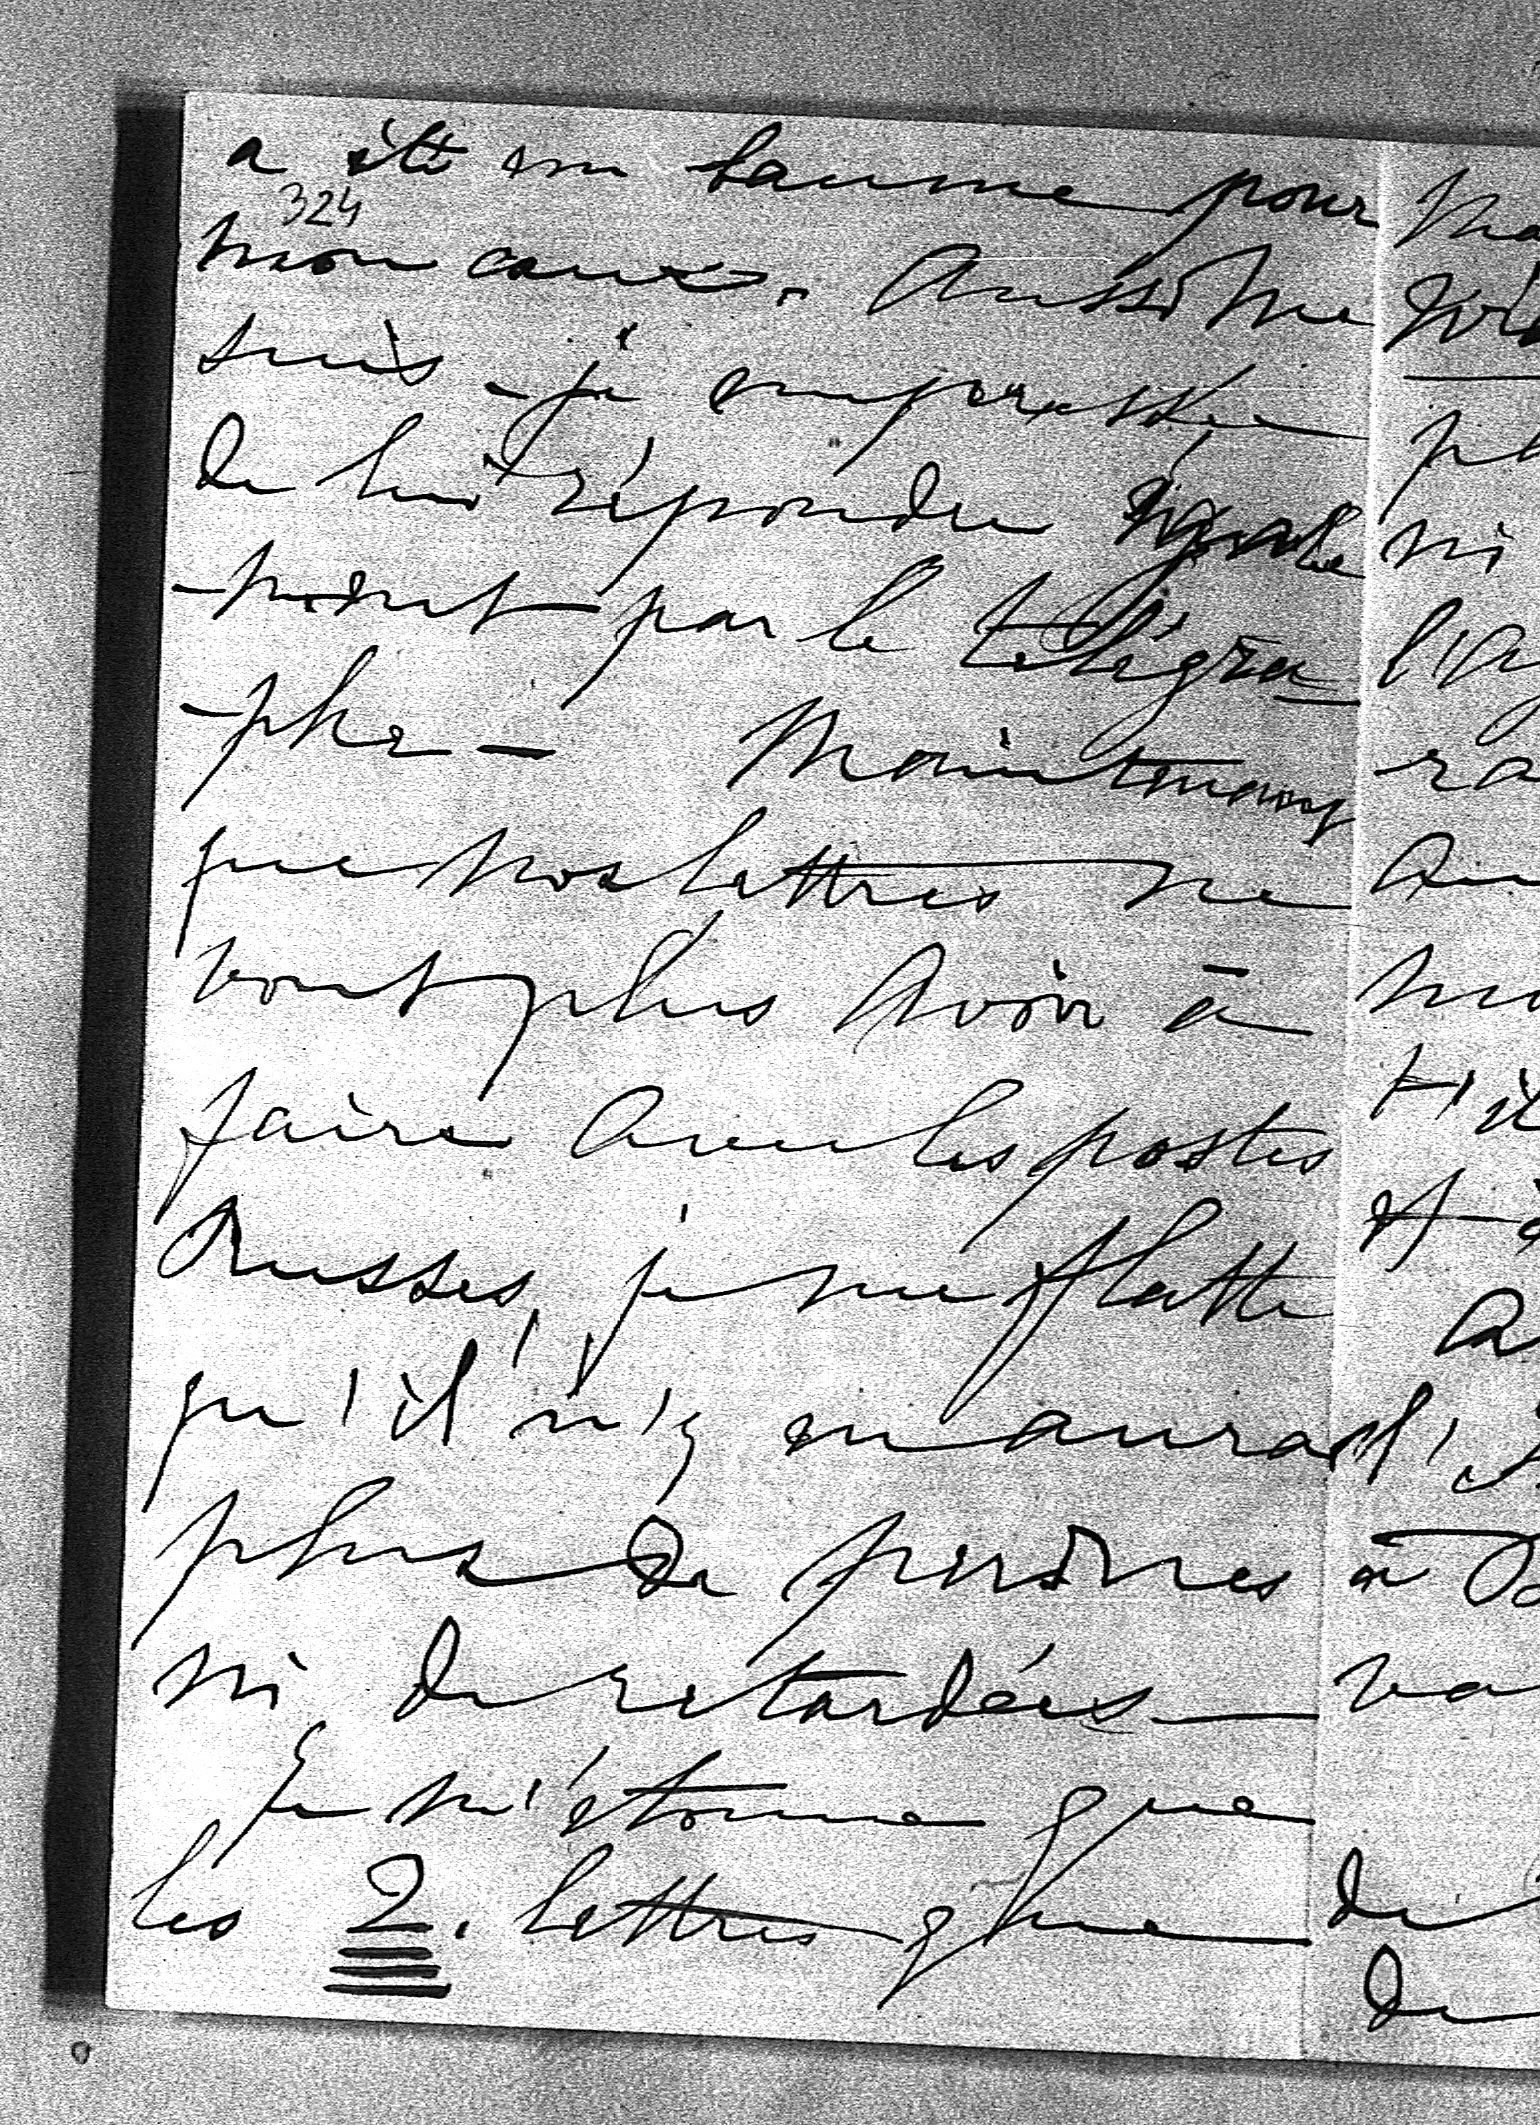 a été un baume pour
324
mon cœur. Aussi me
suis-je empressée
de lui répondre égale
-ment par le télégra-
-phe — Maintenant
que nos lettres ne
vont plus avoir à
faire avec les postes
Russes, je me flatte
qu'il n'y en aura
plus de perdues
ni de retardées —
Je m'étonne que
les 2. lettres que